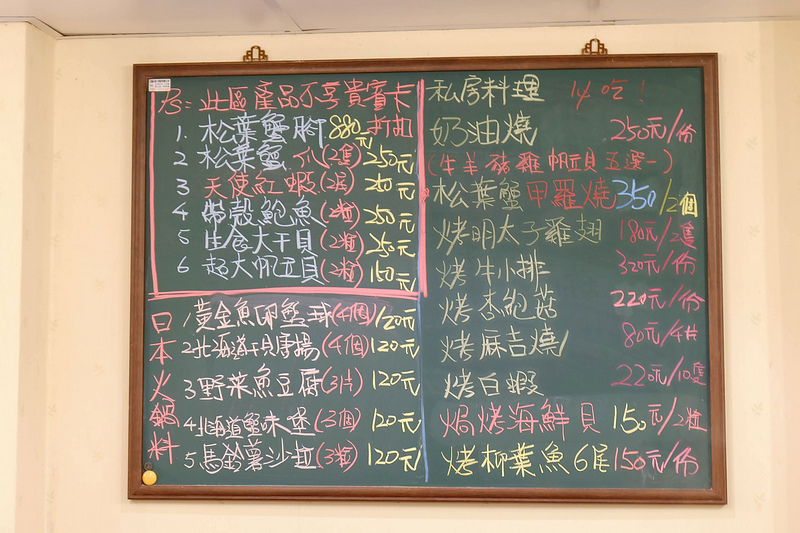 PS:此區產品不享貴賓卡折扣
1. 松葉蟹腳 880元
2 松葉蟹爪(2隻)250元
3 天使紅蝦(2尾)250元
4 帶殼鮑魚(2粒)250元
5 生食大干貝(2粒)250元
6 超大帆立貝(2粒)150元
日本火鍋料
1黃金魚卵蟹球(4個)120元
2北海道干貝唐揚(4個)120元
3野菜魚豆腐(3片)120元
4北海道蟹味堡(3個)120元
5.馬鈴薯沙拉(3粒)120元
私房料理 14吃!
奶油燒 250元/份
(牛羊豬雞帆立貝五選一)
松葉蟹甲羅燒350/2個
烤明太子雞翅 180元/2隻
烤牛小排 320元/份
烤杏鮑菇 220元/份
烤麻吉燒 80元/4片
烤白蝦 220元/10隻
焗烤海鮮貝 150元/2粒
烤柳葉魚6尾150元/份